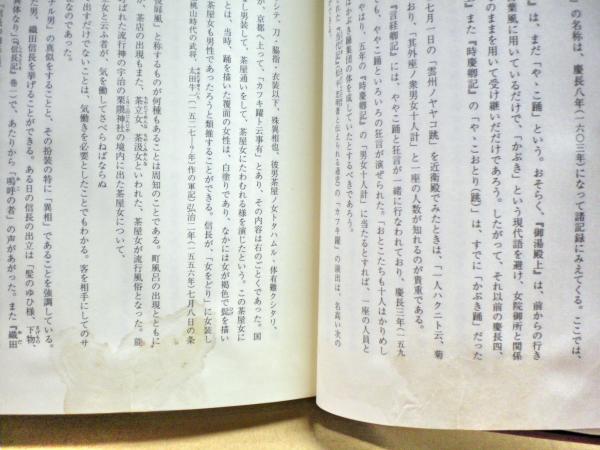 の名称は、慶長八年(一六〇三年)になって諸記録にみえてくる。ここでは、
』は、まだ「やゝ踊」という。おそらく、『御湯殿上』は、前からの行き
葉風に用いているだけで、「かぶき」という現代語を避け、女院御所と関係
のままを用いて受け継いだだけであろう。したがって、それ以前の慶長四、
』また『時慶卿記』の「やゝこおとり(跳)」は、すでに「かぶき踊」だった
七月一日の「雲州ノヤヤコ跳」を近衛殿でみたときは、「一人ハクニト云、菊
おり、「其外座ノ衆男女十人計」と一座の人数が知れるのが貴重である。
『言経卿記』には、ややこ踊と狂言が一緒に行なわれており、慶長三年(一五九
でも、ややこ踊といろいろの狂言が演ぜられた。「おとこたちも十人はかりめし
やはり、五年の『時慶卿記』の「男女十人計」に当たるとすれば、一座の人員と
かぶき踊集団の体を成していたとするべきであろう。
の「カブキ躍」の演出は、名高い次の
シテ、刀・脇指・衣装以下、殊異相也、彼男茶屋ノ女トタハムル、体有難クシタリ、
が、京都へ上って、「カフキ躍ト云事有」とあり、その内容は右のごとくであった。国
し男装して、茶屋通いをして、茶屋女にたわむれる様を演じたという。この茶屋女に
とは、当時、踊を描いた覆面の女性は、白塗りであり、なかには女が褐色で髭を描い
茶屋女も男性であったろうと類推することができる。信長が、「女をどり」に女装し
桃山時代の武将、太田牛一(一五二七〜?年)作の軍記)弘治二年(一五五六年)七月八日の条
俊風」と称するものが何種もあったことは周知のことである。町風呂の出現とともに
が、茶店の出現もまた、茶立女、茶汲女といわれた、茶屋女が流行風俗となった。能
ばれた流行神の宇治の栗隈神社の境内に出た茶屋女について、
女と云ふ者が、気を働してさべらねばならぬ
出すだけでないことは、気働きを必要としたことでもわかる。客を相手にしてのサ
なのであった。
ナル男」の真似をすることと、その扮装の特に「異相」であることを強調している。
た男、織田信長を挙げることができる。ある日の信長の出立は「髪のゆひ様、下物、
異体なり」(『信長記』巻一)で、あたりから「嗚呼の者」の声があがった。また『織田